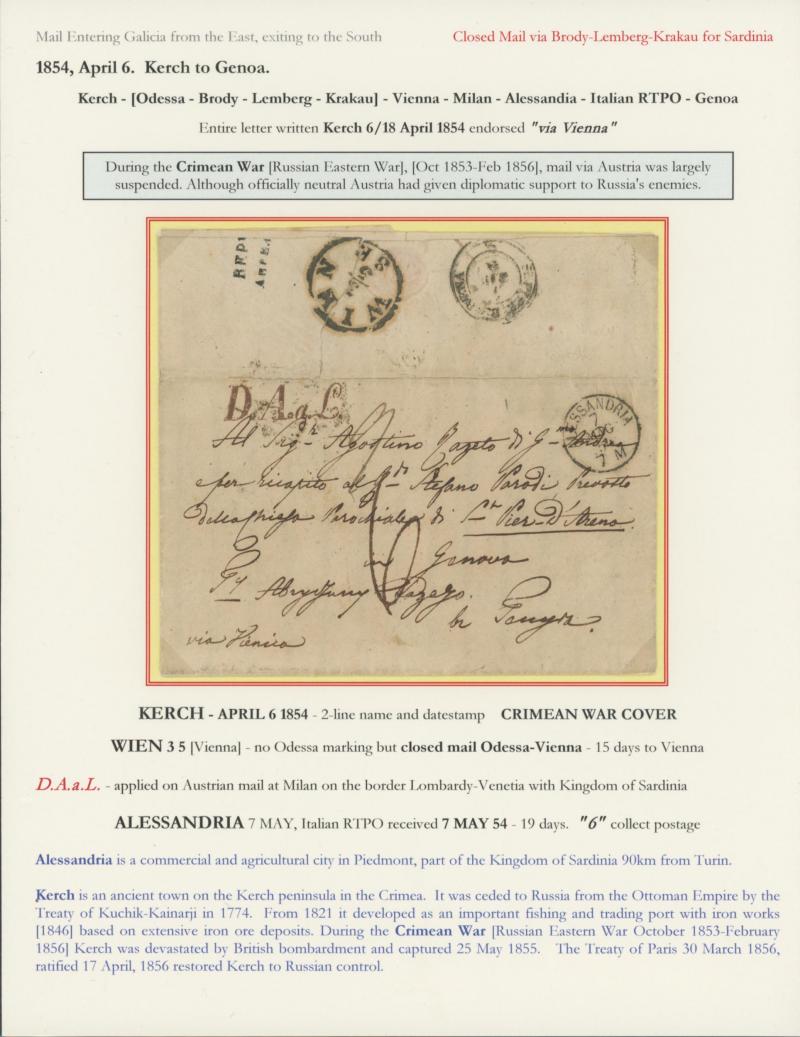 Mail Entering Galicia from the East, exiting to the South
Closed Mail via Brody-Lemberg-Krakau for Sardinia
1854, April 6. Kerch to Genoa.
Kerch - [Odessa - Brody - Lemberg - Krakau] - Vienna - Milan - Alessandia - Italian RTPO - Genoa
Entire letter written Kerch 6/18 April 1854 endorsed "via Vienna"
During the Crimean War [Russian Eastern War], [Oct 1853-Feb 1856], mail via Austria was largely
suspended. Although officially neutral Austria had given diplomatic support to Russia's enemies.
WIEN
D.A.a.L.
ESSANDRIA
7 M
Al Sigr Agostino di Gmo Andrea
e per ricapito al Stefano Parodi Prevosto
della Chiesa Parochiale di Sn Pier-D'Arena
in Genova
6
via Vienna
KERCH - APRIL 6 1854 - 2-line name and datestamp CRIMEAN WAR COVER
WIEN 3 5 [Vienna] - no Odessa marking but closed mail Odessa-Vienna - 15 days to Vienna
D.A.a.L. - applied on Austrian mail at Milan on the border Lombardy-Venetia with Kingdom of Sardinia
ALESSANDRIA 7 MAY, Italian RTPO received 7 MAY 54 - 19 days. "6" collect postage
Alessandria is a commercial and agricultural city in Piedmont, part of the Kingdom of Sardinia 90km from Turin.
Kerch is an ancient town on the Kerch peninsula in the Crimea. It was ceded to Russia from the Ottoman Empire by the
Treaty of Kuchik-Kainarji in 1774. From 1821 it developed as an important fishing and trading port with iron works
[1846] based on extensive iron ore deposits. During the Crimean War [Russian Eastern War October 1853-February
1856] Kerch was devastated by British bombardment and captured 25 May 1855. The Treaty of Paris 30 March 1856,
ratified 17 April, 1856 restored Kerch to Russian control.